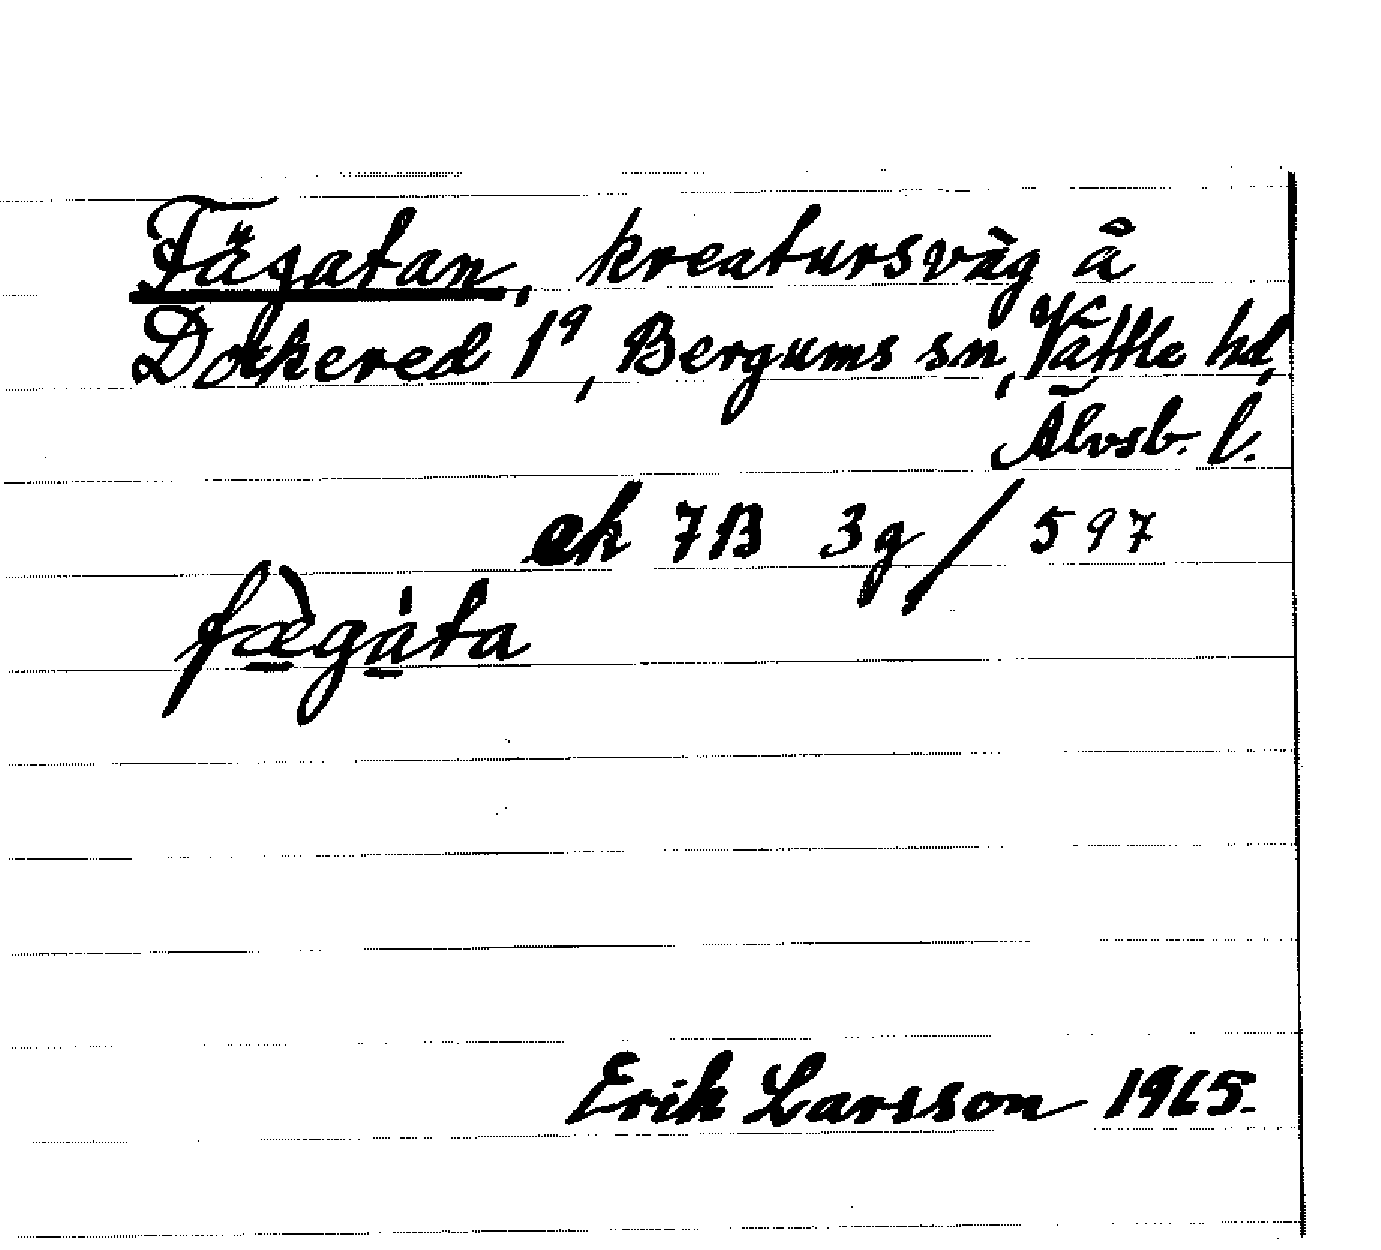 Fägatan, kreatursväg å
Dockered 1⁹, Bergums sn, Vättle hd,
Älvsb. l.
ek 7B 3g/597
fæ̠̀gà̠ta
Erik Larsson 1965.